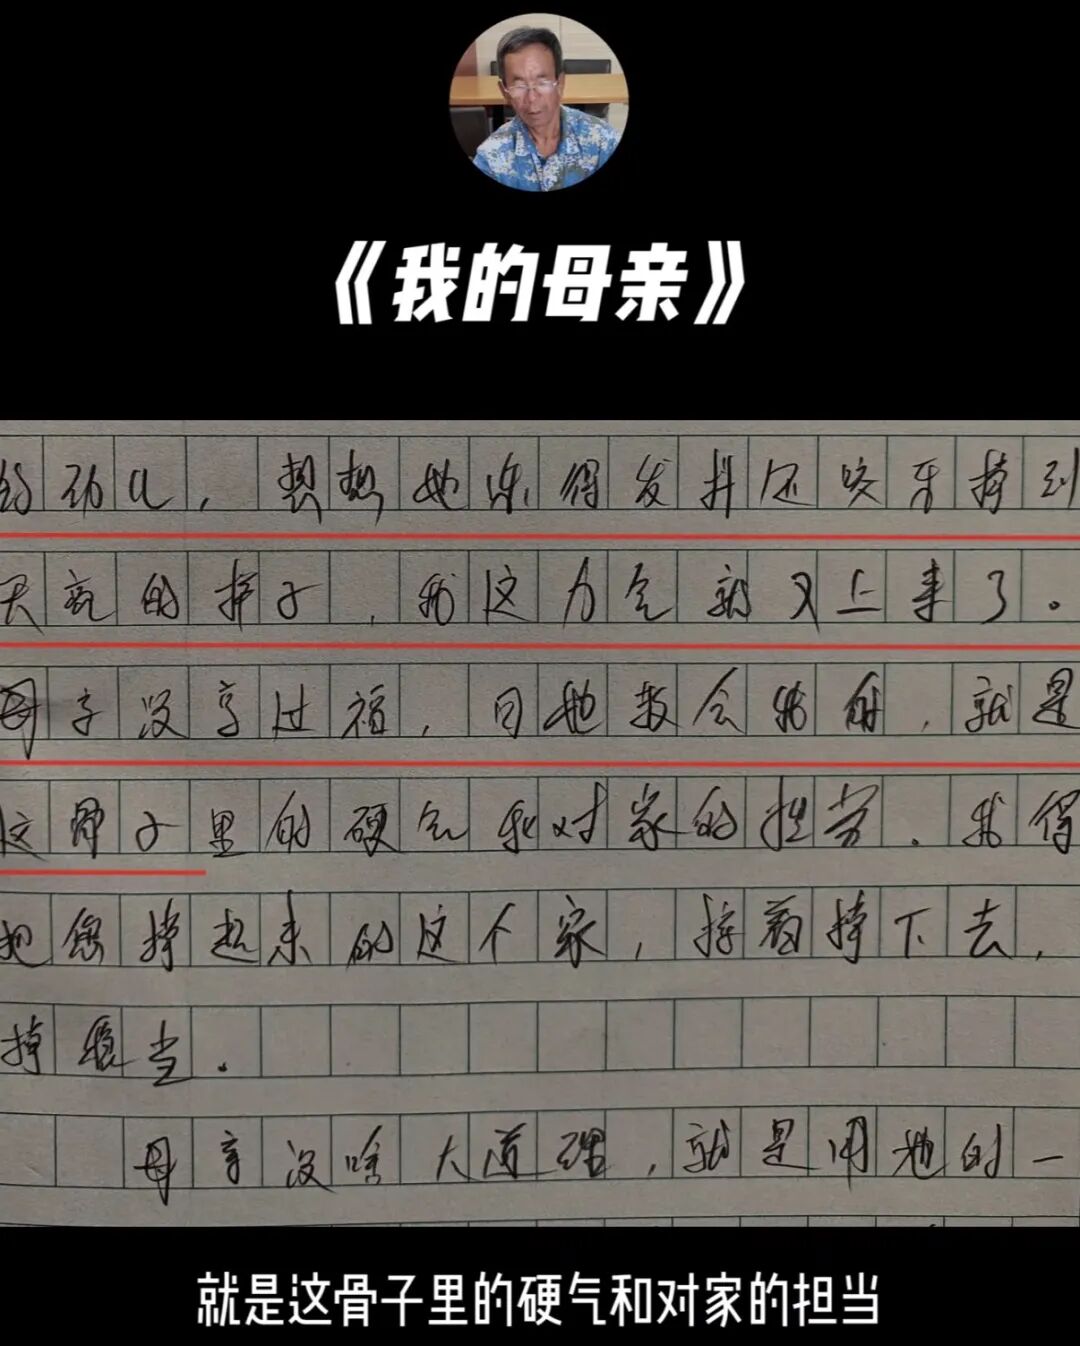 《我的母亲》
的劲儿，想想她冻得发抖还咬牙撑到
天亮的样子，我这力气就又上来了。
母亲没享过福，可她教会我的，就是
这骨子里的硬气和对家的担当。我得
把您撑起来的这个家，接着撑下去，
撑稳当。
母亲没啥大道理，就是用她的一
就是这骨子里的硬气和对家的担当